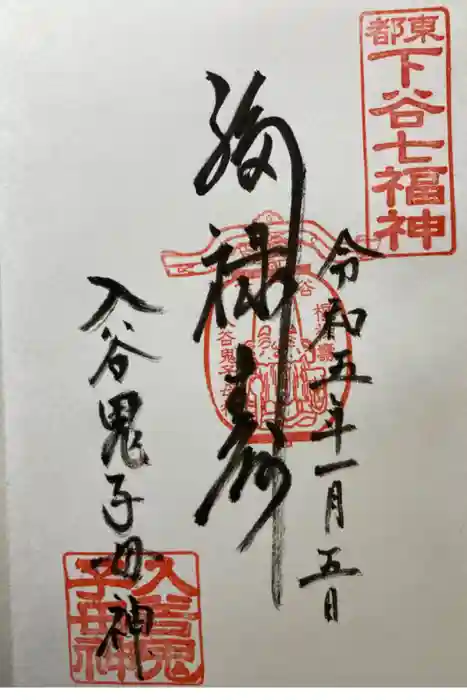 東都
下谷七福神
令和五年一月五日
福禄寿
入谷鬼子母神
入谷鬼
子母神